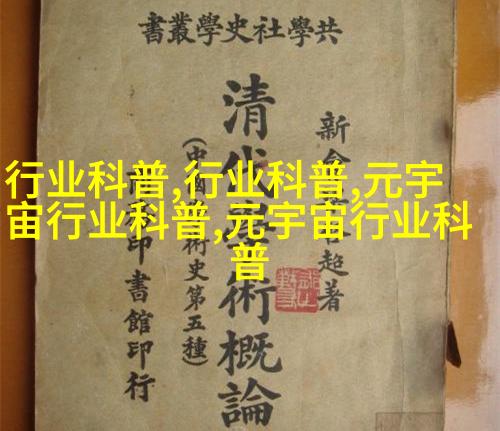 共學社史學叢書
新會超著
清代學術概論
(中國學術史第五種)
印書館印行
行业科普,行业科普,元宇
宙行业科普,元宇宙行业科
普